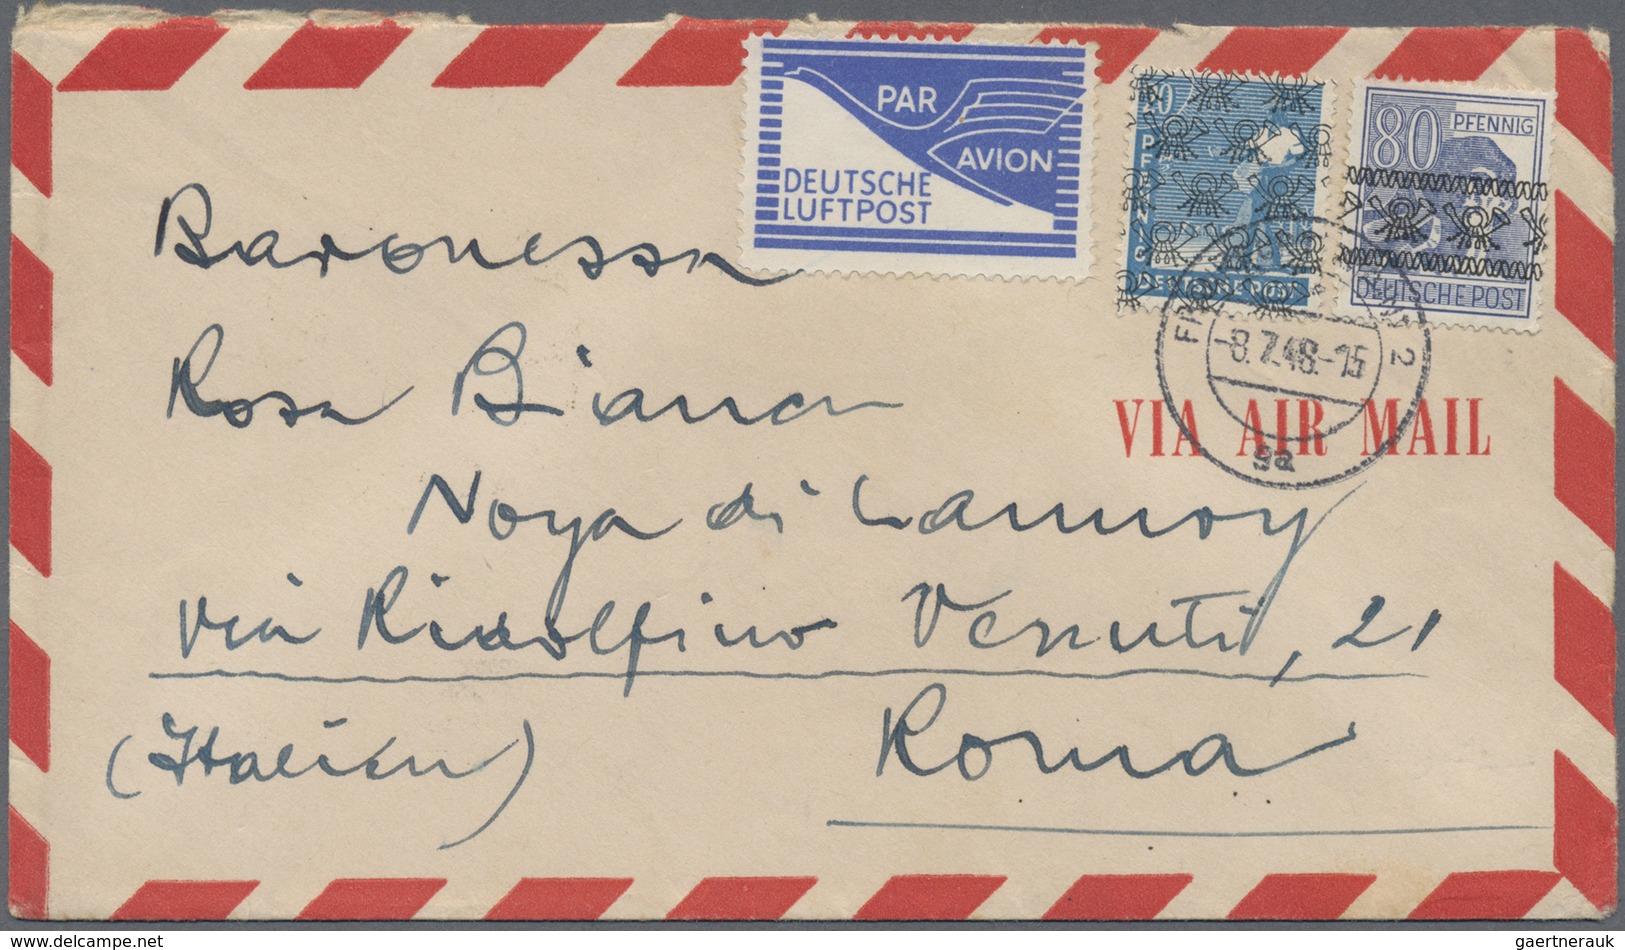 PAR
AVION
DEUTSCHE
LUFTPOST
PFENNIG
DEUTSCHE POST
80 PFENNIG
DEUTSCHE POST
-8.7.48.-15
2
9a
VIA AIR MAIL
Baronessa
Rosa Bianca
Noya di Lannoy
via Ridolfino Venuti, 21
(Italien) Roma
delcampe.net
gaertnerauk